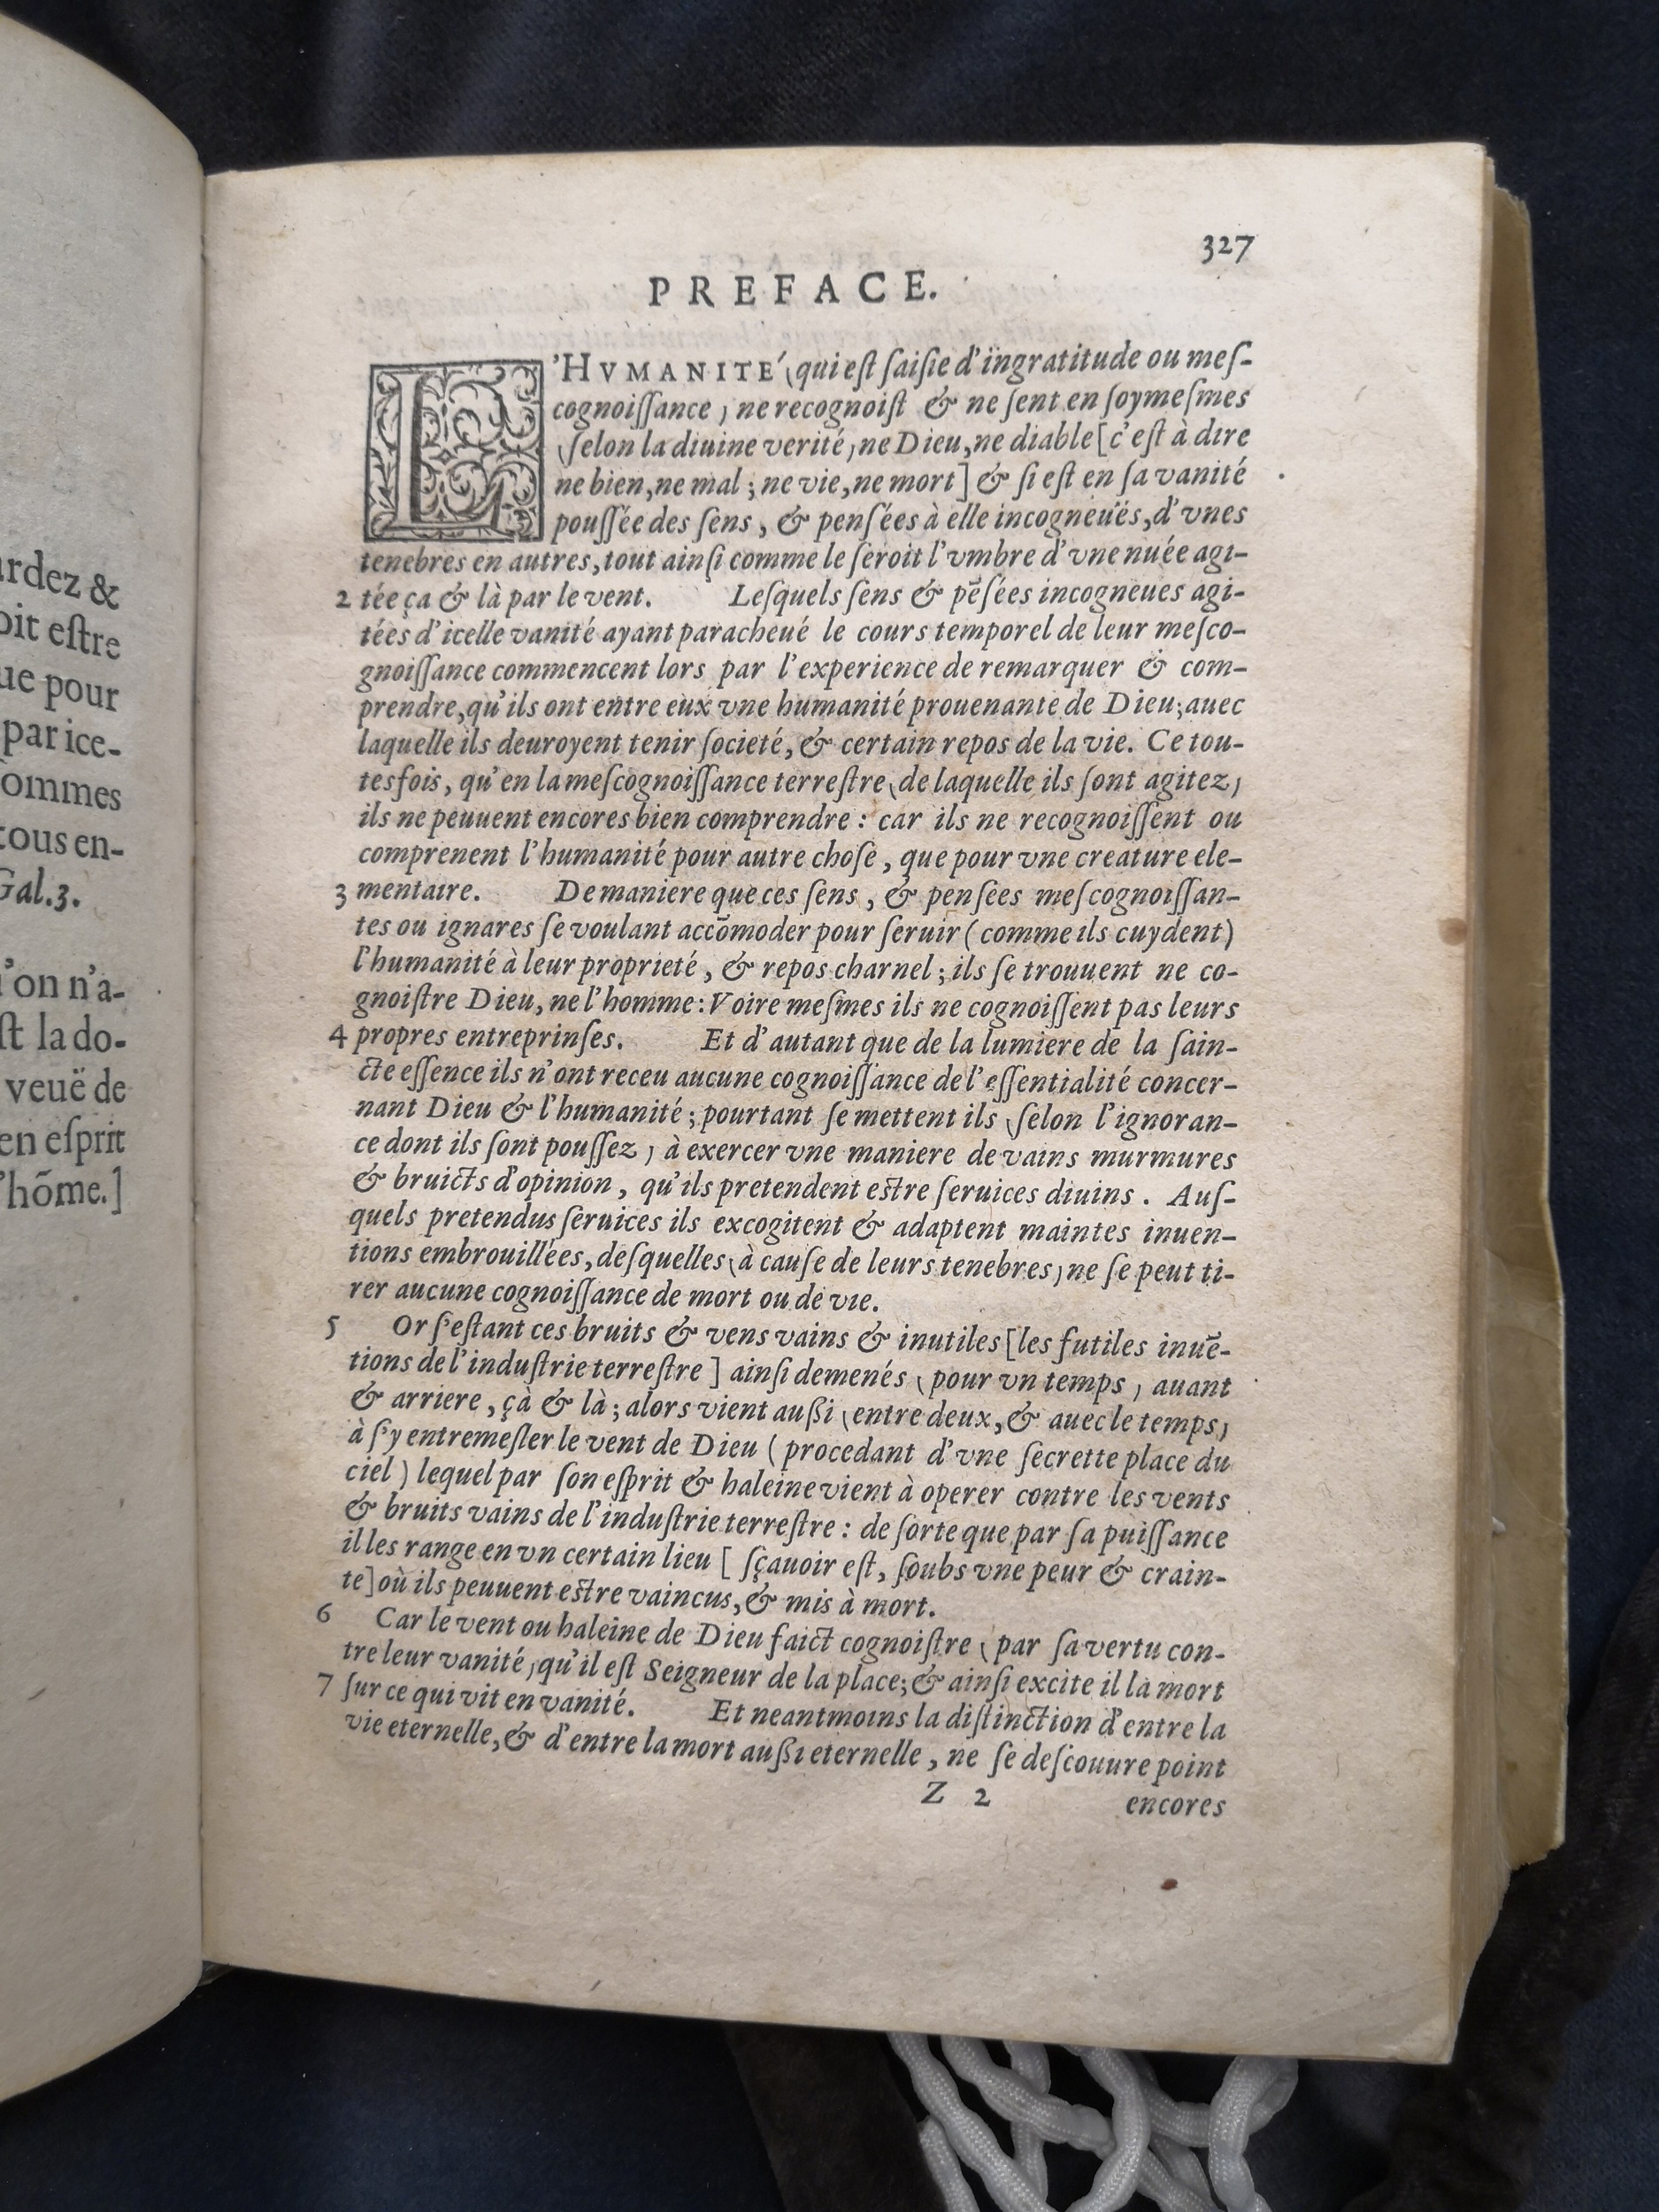 ardez &
oit eſtre
ue pour
par ice-
ommes
tous en-
Gal.3.
l'on n'a-
ſt la do-
veuë de
en eſprit
'hõme.]
327
PREFACE.
L'HVMANITÉ (qui eſt ſaiſie d'ïngratitude ou meſ-
cognoiſſance) ne recognoiſt & ne ſent en ſoymeſmes
(ſelon la diuine verité) ne Dieu, ne diable [c'eſt à dire
ne bien, ne mal; ne vie, ne mort] & ſi eſt en ſa vanité
pouſſée des ſens, & penſées à elle incogneuës, d'vnes
tenebres en autres, tout ainſi comme le ſeroit l'vmbre d'vne nuée agi-
2 tée ça & là par le vent. Leſquels ſens & pẽſées incogneues agi-
tées d'icelle vanité ayant paracheué le cours temporel de leur meſco-
gnoiſſance commencent lors par l'experience de remarquer & com-
prendre, qu'ils ont entre eux vne humanité prouenante de Dieu; auec
laquelle ils deuroyent tenir ſocieté, & certain repos de la vie. Ce tou-
tesfois, qu'en la meſcognoiſſance terreſtre (de laquelle ils ſont agitez)
ils ne peuuent encores bien comprendre : car ils ne recognoiſſent ou
comprenent l'humanité pour autre choſe, que pour vne creature ele-
3 mentaire. De maniere que ces ſens, & penſées meſcognoiſſan-
tes ou ignares ſe voulant accõmoder pour ſeruir (comme ils cuydent)
l'humanité à leur proprieté, & repos charnel; ils ſe trouuent ne co-
gnoiſtre Dieu, ne l'homme: Voire meſmes ils ne cognoiſſent pas leurs
4 propres entreprinſes. Et d'autant que de la lumiere de la ſain-
cte eſſence ils n'ont receu aucune cognoiſſance de l'eſſentialité concer-
nant Dieu & l'humanité; pourtant ſe mettent ils (ſelon l'ignoran-
ce dont ils ſont pouſſez) à exercer vne maniere de vains murmures
& bruicts d'opinion, qu'ils pretendent eſtre ſeruices diuins. Auſ-
quels pretendus ſeruices ils excogitent & adaptent maintes inuen-
tions embrouillées, deſquelles (à cauſe de leurs tenebres) ne ſe peut ti-
rer aucune cognoiſſance de mort ou de vie.
5 Or ſ'eſtant ces bruits & vens vains & inutiles [les futiles inuẽ-
tions de l'induſtrie terreſtre] ainſi demenés (pour vn temps) auant
& arriere, çà & là; alors vient außi (entre deux, & auec le temps)
à ſ'y entremeſler le vent de Dieu (procedant d'vne ſecrette place du
ciel) lequel par ſon eſprit & haleine vient à operer contre les vents
& bruits vains de l'induſtrie terreſtre : de ſorte que par ſa puiſſance
il les range en vn certain lieu [ſçauoir eſt, ſoubs vne peur & crain-
te] où ils peuuent eſtre vaincus, & mis à mort.
6 Car le vent ou haleine de Dieu faict cognoiſtre (par ſa vertu con-
tre leur vanité) qu'il eſt Seigneur de la place; & ainſi excite il la mort
7 ſur ce qui vit en vanité. Et neantmoins la diſtinction d'entre la
vie eternelle, & d'entre la mort außi eternelle, ne ſe deſcouure point
Z 2 encores